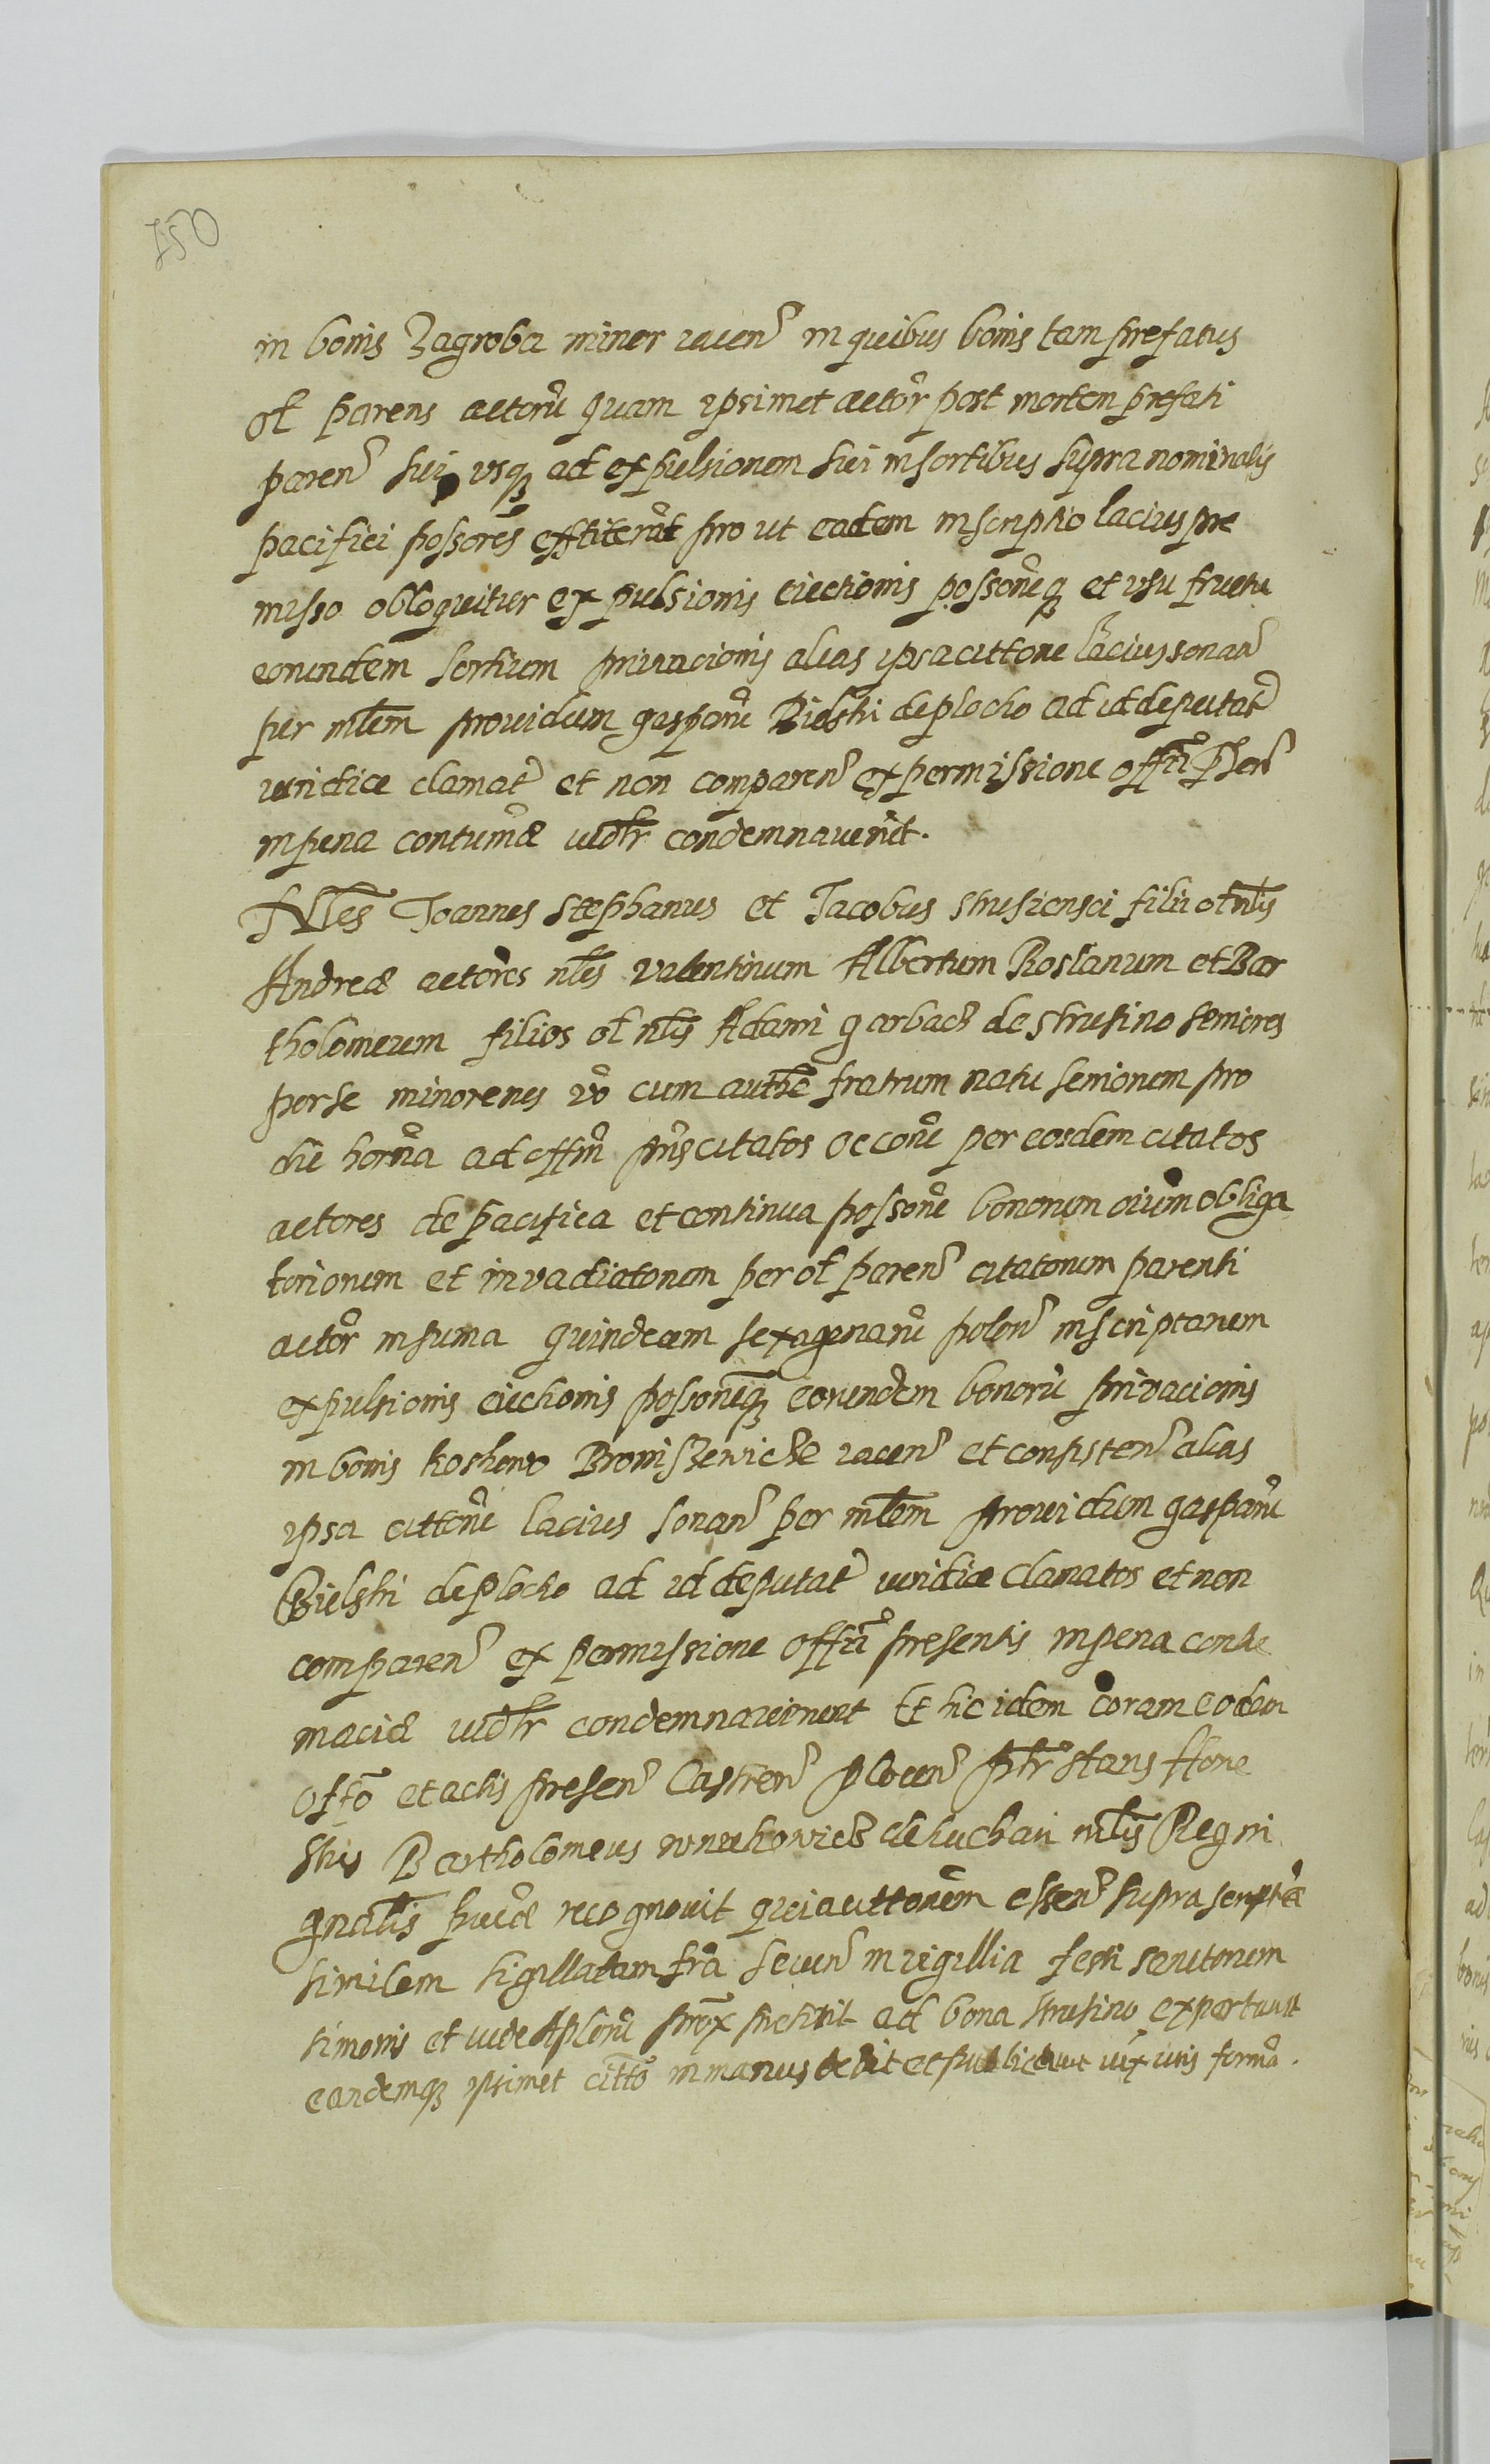 150
in bonis Zagroba minor iacen̄ in quibus bonis tam prefatus
ol parens actorū quam ipsimet actor̄ post mortem prefati
paren̄ sui usq ad expulsionem sui in sortibus supra nominatis
pacifici possores extiterūt pro ut eadem inscriptio lacius pre
misso obloquitur expulsionis eiectionis possoneq et usu fructu
eorundem sortium privacionis alias ipsa cittone lacius sonan̄
per mlem providum gasparū Bielski de plocko ad id deputat̄
iuridice clamat̄ et non comparen̄ ex permissione offii p̄sen̄
in pena contumac̄ iudlr condemnaverūt.
Nles Joannes Stephanus et Jacobus strusienscii filii ol nlis
Andreæ actores nles valentinum Albertum Roslanum et Bar
tholomeum filios ol nlis Adami garbacz de strusino seniores
per se minorenes vō cum authe fratrum natu seniorum pro
die horna ad offm prns citatos occone per eosdem citatos
actores de pacifica et continua possone bonorum oium obliga
toriorum et invadiatorum per ol paren̄ citatorum parenti
actor̄ in suma quindecim sexagenarū polon̄ inscriptarum
expulsionis eiectionis possoneq eorundem bonorū privacionis
in bonis koskowo Broniszewicze iacen̄ et consisten̄ alias
ipsa cittone lacius sonan̄ per mlem providum gasparū
Bielski de plocko ad id deputat̄ iuridice clamatos et non
comparen̄ ex permissione offii presentis in pena contu
maciæ iudlr condemnaverunt Et hic idem coram eodem
offo et actis presen̄ Castren̄ plocen̄ plr stans
Bartholomeus de mlis Regni
gnalis recognovit quia cittonem essen̄ supra scriptæ
similem sigillatam fra secun̄ in vigillia festi sanctorum
simonis et iude Aplorū prox ad bona strusino
eandemq ipsimet citto in manus dedit et iuris forma.